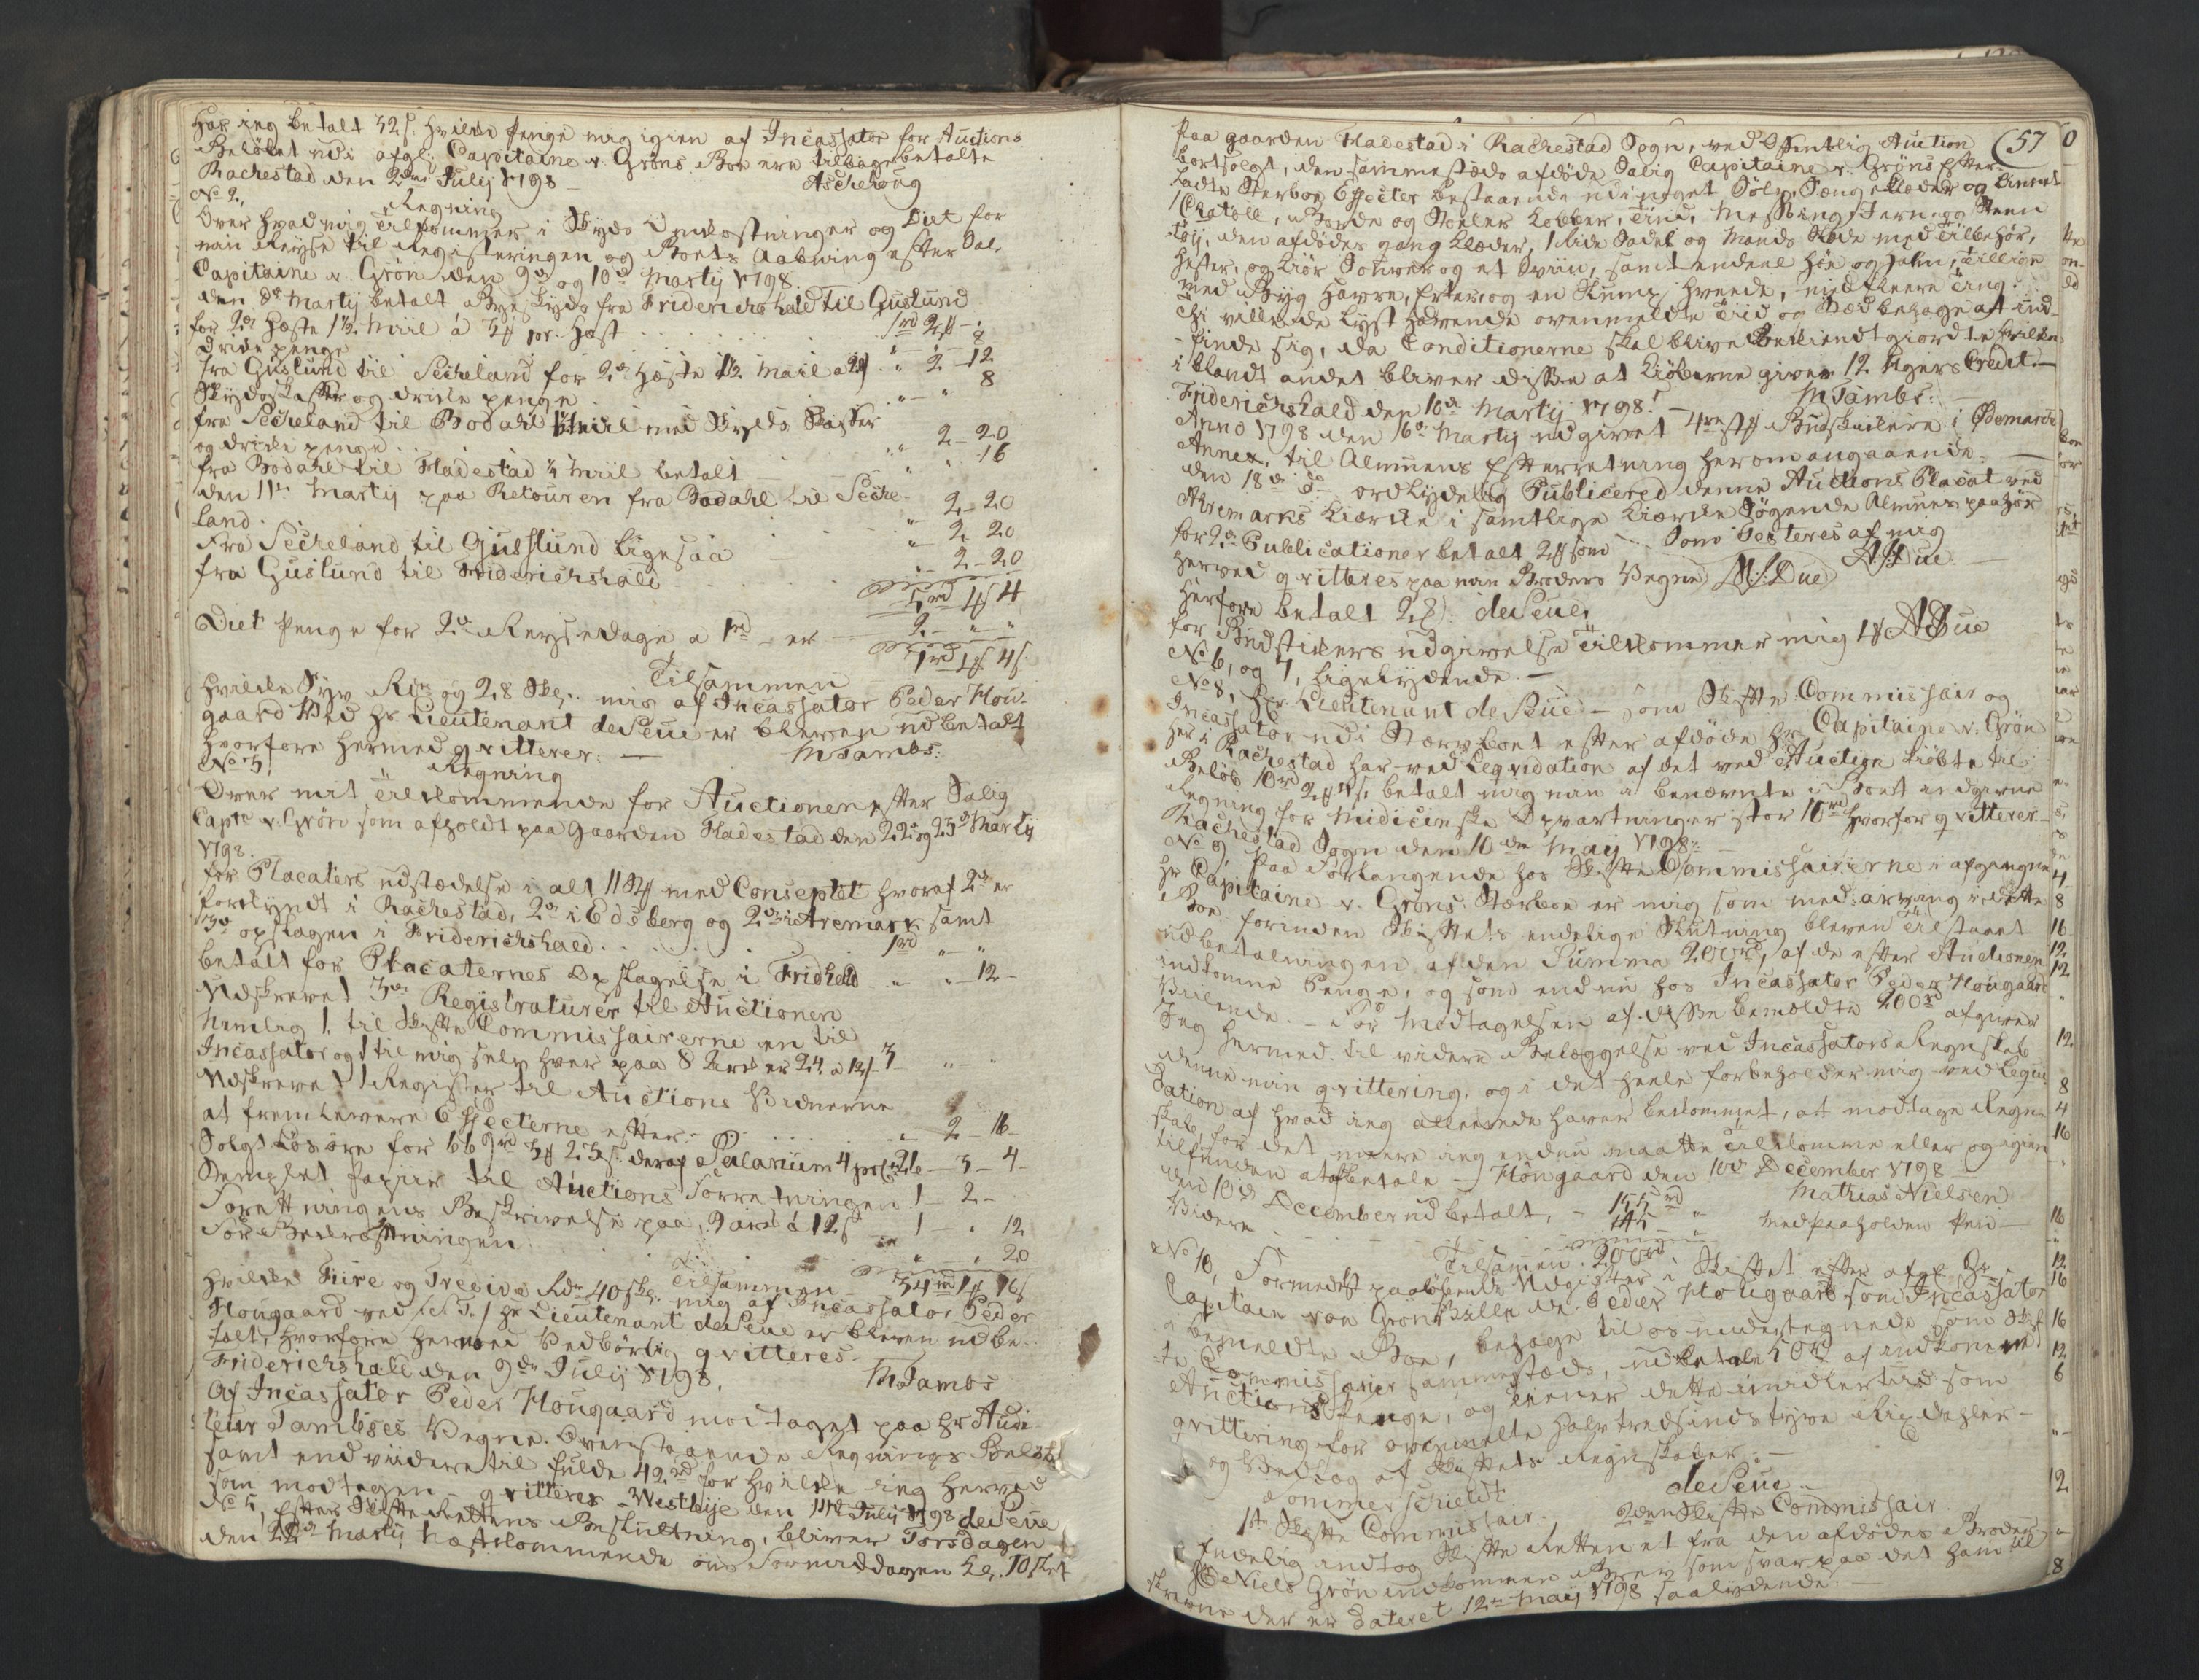 har ieg betalt 32 s: hvilke Penge mig igien af Incassator for Auctions
Beløbet udi afgl: Capitaine v. Grøns Boe ere tilbagebetalte
Rachestad den 2den Julij 1798 – Aschehoug
No 2, Regning
Over hvad mig tilkommer i Skyds Omkostninger og Diet for
min Reyse til Registeringen og Boets Aabning efter Sal.
Capitaine v. Grøn den 9de og 10de Martij 1798.
den 8de Martij betalt Bye Skyds fra Friderichshald til Guslund
for 2de Hæste 1½ Miil á 3 # pr. Hæst . . . 1rd 2 # – "
Drikepenge . . . " " 8
fra Guslund til Secheland for 2de Hæste 1½ Miil a 28 s . " 2 – 12
Skydsskaffer og drike penge . . " – " 8
fra Secheland til Bodahl 1 Miil med Skyds Skaffer
og driki penge . . . " 2 – 20
fra Bodahl til Fladestad ¼ Miil betalt " " 16
den 11te Martij paa Retouren fra Bodahl til Seche-
land . . " 2 – 20
Fra Secheland til Guslund ligesaa " 2 20
fra Guslund til Friderichshald " 2 – 20
5rd 1 # 4
Diet Penge for 2de Reysedage a 1rd – er – 2 – " "
Tilsammen 7rd 1 # 4 s
Hvilke Syv Rdr og 28 Sk: mig af Incassator Peder Hou-
gaard ved Hr Lieutenant de Seue er bleven udbetalt
hvorfore hermed qvitterer. – MTambs:
No 3, Regning
Over mit Tilkommende for Auctionen efter Salig
Capt: v. Grøn som afholdt paa Gaarden Fladestad den 22de og 23de Martij
1798.
for Placaters udstædelse i alt 11 St med Conceptet hvoraf 2de er
forkyndt i Rachestad, 2de i Edsberg og 2de i Aremark samt
3de opslagen i Friderichshald . . . 1rd " – "
betalt for Placaternes Opslagelse i Fridhald " " 12 –
Udskrevet 3de Registraturer til Auctionen
Nemlig 1. til Skifte Commissairerne en til
Incassator og 1 til mig selv hver paa 8 Ark er 24. a 12 s – 3 " "
Udskrevet 1 Register til Auctions Vidnerne
at fremlevere Effecterne efter . . . " 2 – 16 –
Solgt Løsøre for 669rd 3 # 23 s: deraf Salarium 4 prC: 26 – 3 – 4 –
Stemplet papiir til Auctions Forretningen 1 – 2 –
Forettningens Beskrivelse paa 9 ark á 12 s – 1 – " 12
For Bekræftningen " " 20
Tilsammen 34rd 1 # 16 s
Hvilke Fiire og Tredive Rdr 40 sk: mig af Incassator Peder
Hougaard ved /: S.T. :/ Hr Lieutenant de Seue er bleven udbe-
talt, hvorfore hermed Vedbørlig qvitteres
Friderichshald den 9de Julij 1798. M.Tambs
Af Incassator Peder Hougaard modtaget paa Hr Audi-
teur Tambses Vegne Ovenstaaende Regnings Beløb
samt end viidere til fulde 42rd for hvilke ieg herved
som modtagen qvitterer – Westbye den 14de Julij 1798 de Seue
No 5, Efter Skifte Rettens Beslutning, bliver Torsdagen
den 22de Martij næstkommende om Formiddagen Kl. 10 slet
(57
Paa gaarden Fladestad i Rachestad Sogn, ved Offentlig Auction
bortsolgt, den sammestæds afdøde Salig Capitaine v. Grøns Efter-
ladte Sterboe Effecter bestaaende udi noget Sølv, Sengeklæder og Linnet
1 Chatoll, Borde og Stoeler Kobber, Tind, Messing, Jern og Steen
tøij, den afdødes gang Klæder, 1 Ride Sadel og Mands Slæde med tilbehør,
Hester, og Kiør Souver og et Sviin, samt endeel Høe og Halm, tillige
med Byg Havre, Erter, og en Slump Hveede, med fleere ting.
Thi vilde de Lyst havende ovenmeldte Tiid og Sted behage at ind-
finde sig, da Conditionerne skal blive Bekiendtgiorte hvilke
i blandt andet bliver disse at Kiøberne giver 12 Ugers Credit –
Friderichshald den 10de Martij 1798. – MTambs:
Anno 1798 den 16de Martij udgivet 4re st Budstikere i Ødemarks
Annex, til Almuens Efterretning herom angaaende. –
den 18de do ordlydelig Publicered denne Auctions Placat ved
Aremarks Kierke i samtlige Kierke Søgende Almues paahør
Som Testeres af mig
for 2de Publicationer betalt 2 # som A:Due.
herved qvitteres paa min Broders Vegne A:S:Due
herfore betalt 2 #: de Seue,
for Budstikers udgivelse tilkommer mig 1 # ADue
No 6, og 7, ligelydende. –
No 8, Hr. Lieutenant de Seue – som Skifte Commissair og
Incassator udi Stervboet efter afdøde Hr Capitaine v. Grøn
her i Rachestad har ved Leqvidation af det ved Auction kiøbte til
Beløb 10rd betalt mig min benævnte i Boet indgivne
Regning for Medicinske Opvartninger stor 10rd hvorfor qvitterer –
Rachestad Sogn den 10de Maij 1798 –
No 9, Paa Forlangende hos Skifte Commissairerne i afgangne
Hr Capitaine v. Grøns Sterboe er mig som med arving i dette
Boe forinden Skiftets endelige Slutning bleven tilstaaet
udbetalningen af den Summa 200rd, af de efter Auctionen
indkomne Penge, og som endnu hos Incassator Peder Hougaard
Beroende. – For Modtagelsen af disse bemeldte 200rd afgiver
Jeg hermed til videre Belæggelse ved Incassators Regnskab
denne min qvittering, og i det heele forbeholder mig ved Leqvi-
dation af hvad ieg allereede haver bekommet, at modtage Regn-
skab, for det meere ieg endnu maatte tilkomme eller og igien
tilfunden at afbetale – Hougaard den 10de December 1798
Mathias Nielsen
den 10de December udbetalt, – 155rd " Med paaholden Pen –
Videre . . . 45 "
Tilsamen 200rd
No 10, Formedelst paaløbende Udgifter i Skiftet efter afgl. Hr
Capitain von Grøn Vilde Sr. Peder Hougaard som Incassator
i bemeldte Boe, behage til os undertegnede som Skif-
te Commissairer sammestæds, udbetale 50rd af indkomne
Auctions Penge, og tiener dette imidlertiid som
qvittering for ovenmelte halvtredsindstyve Rixdaler –
og Vedlæg af Skiftets Regnskaber. –
Sommerschieldt de Seue
1te Skifte Commissair. 2den Skifte Commissair.
Endelig indtog Skifte Retten et fra den afdødes Broder
Hr Niels Grøn indkommen Brev som svar paa det ham til
skrevne der er Dateret 12te Maij 1798 saalydende. –